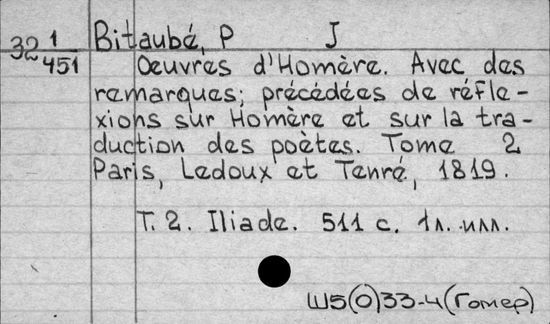 32 1/451
Bitaubé, P J
Oeuvres d'Homère. Avec des
remarques; précédées de réfle-
xions sur Homère et sur la tra-
duction des poètes. Tome 2
Paris, Ledoux et Tenré, 1819.
T. 2. Iliade. 511 с. 1л. илл.
Ш5(0)33-4(Гомер)